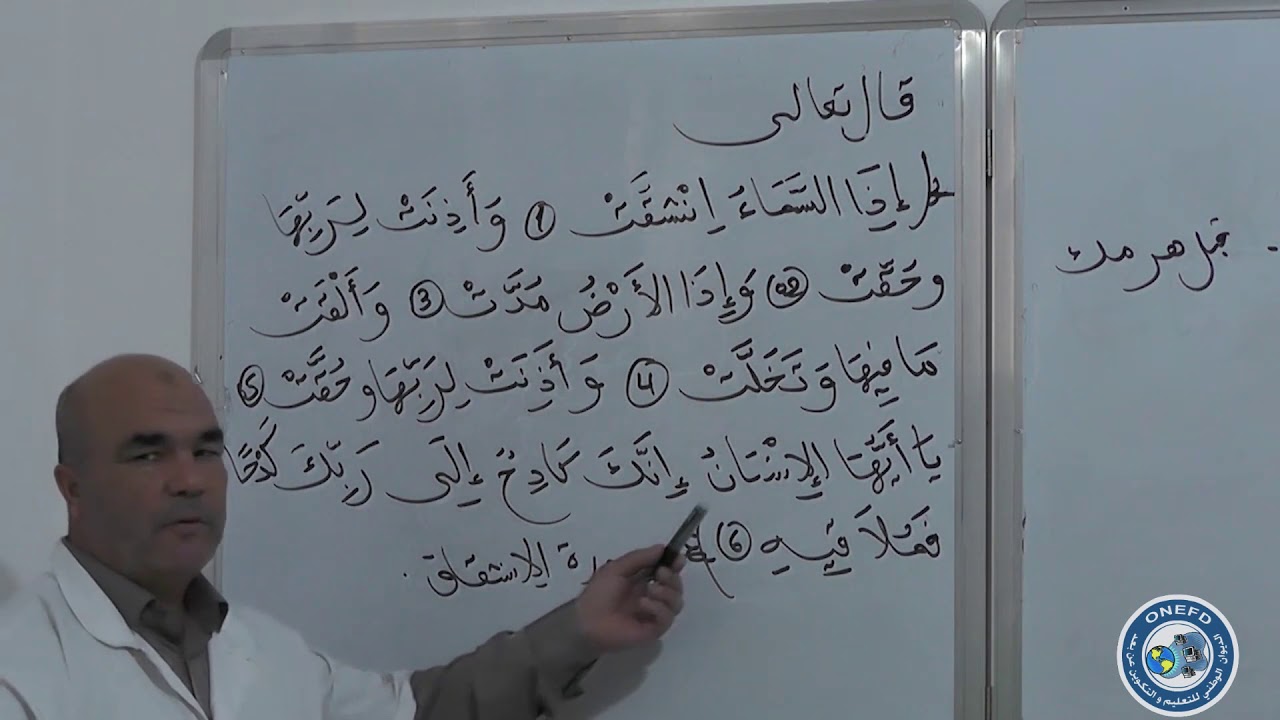 قال تعالى
﴿إِذَا السَّمَاءُ اِنْشَقَّتْ ① وَأَذِنَتْ لِرَبِّهَا
وحُقَّتْ ② وَإِذَا الأَرْضُ مُدَّتْ ③ وَأَلْقَتْ
مَا فِيهَا وَتَخَلَّتْ ④ وَأَذِنَتْ لِرَبِّهَا وحُقَّتْ ⑤
يَا أَيُّهَا الإِنْسَانُ إِنَّكَ كَادِحٌ إِلَى رَبِّكَ كَدْحًا
فَمُلاَقِيهِ ⑥﴾ الإنشقاق.
ONEFD
الديوان الوطني للتعليم و التكوين عن بعد